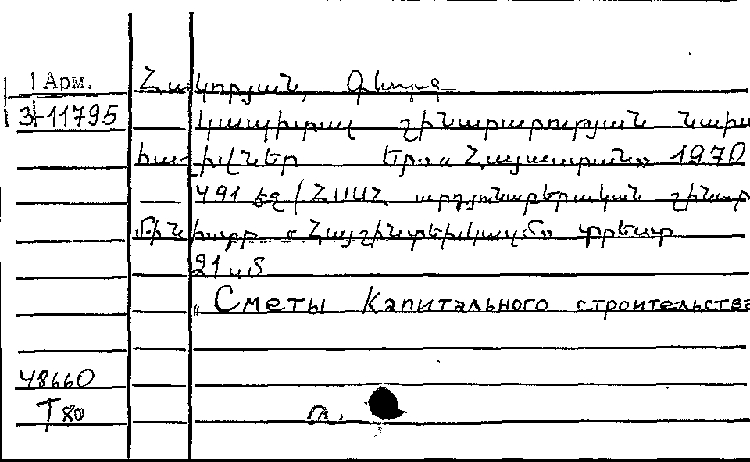 Арм.
З-11795
Հակոբյան, Գևորգ
Կապիտալ շինարարության նախա
հաշիվներ Եր. «Հայաստան» 1970
491 էջ / ՀՍՍՀ արդյունաբերական շինար
մինիստր.
21 սմ
"Сметы капитального строительства
48660
Т 80